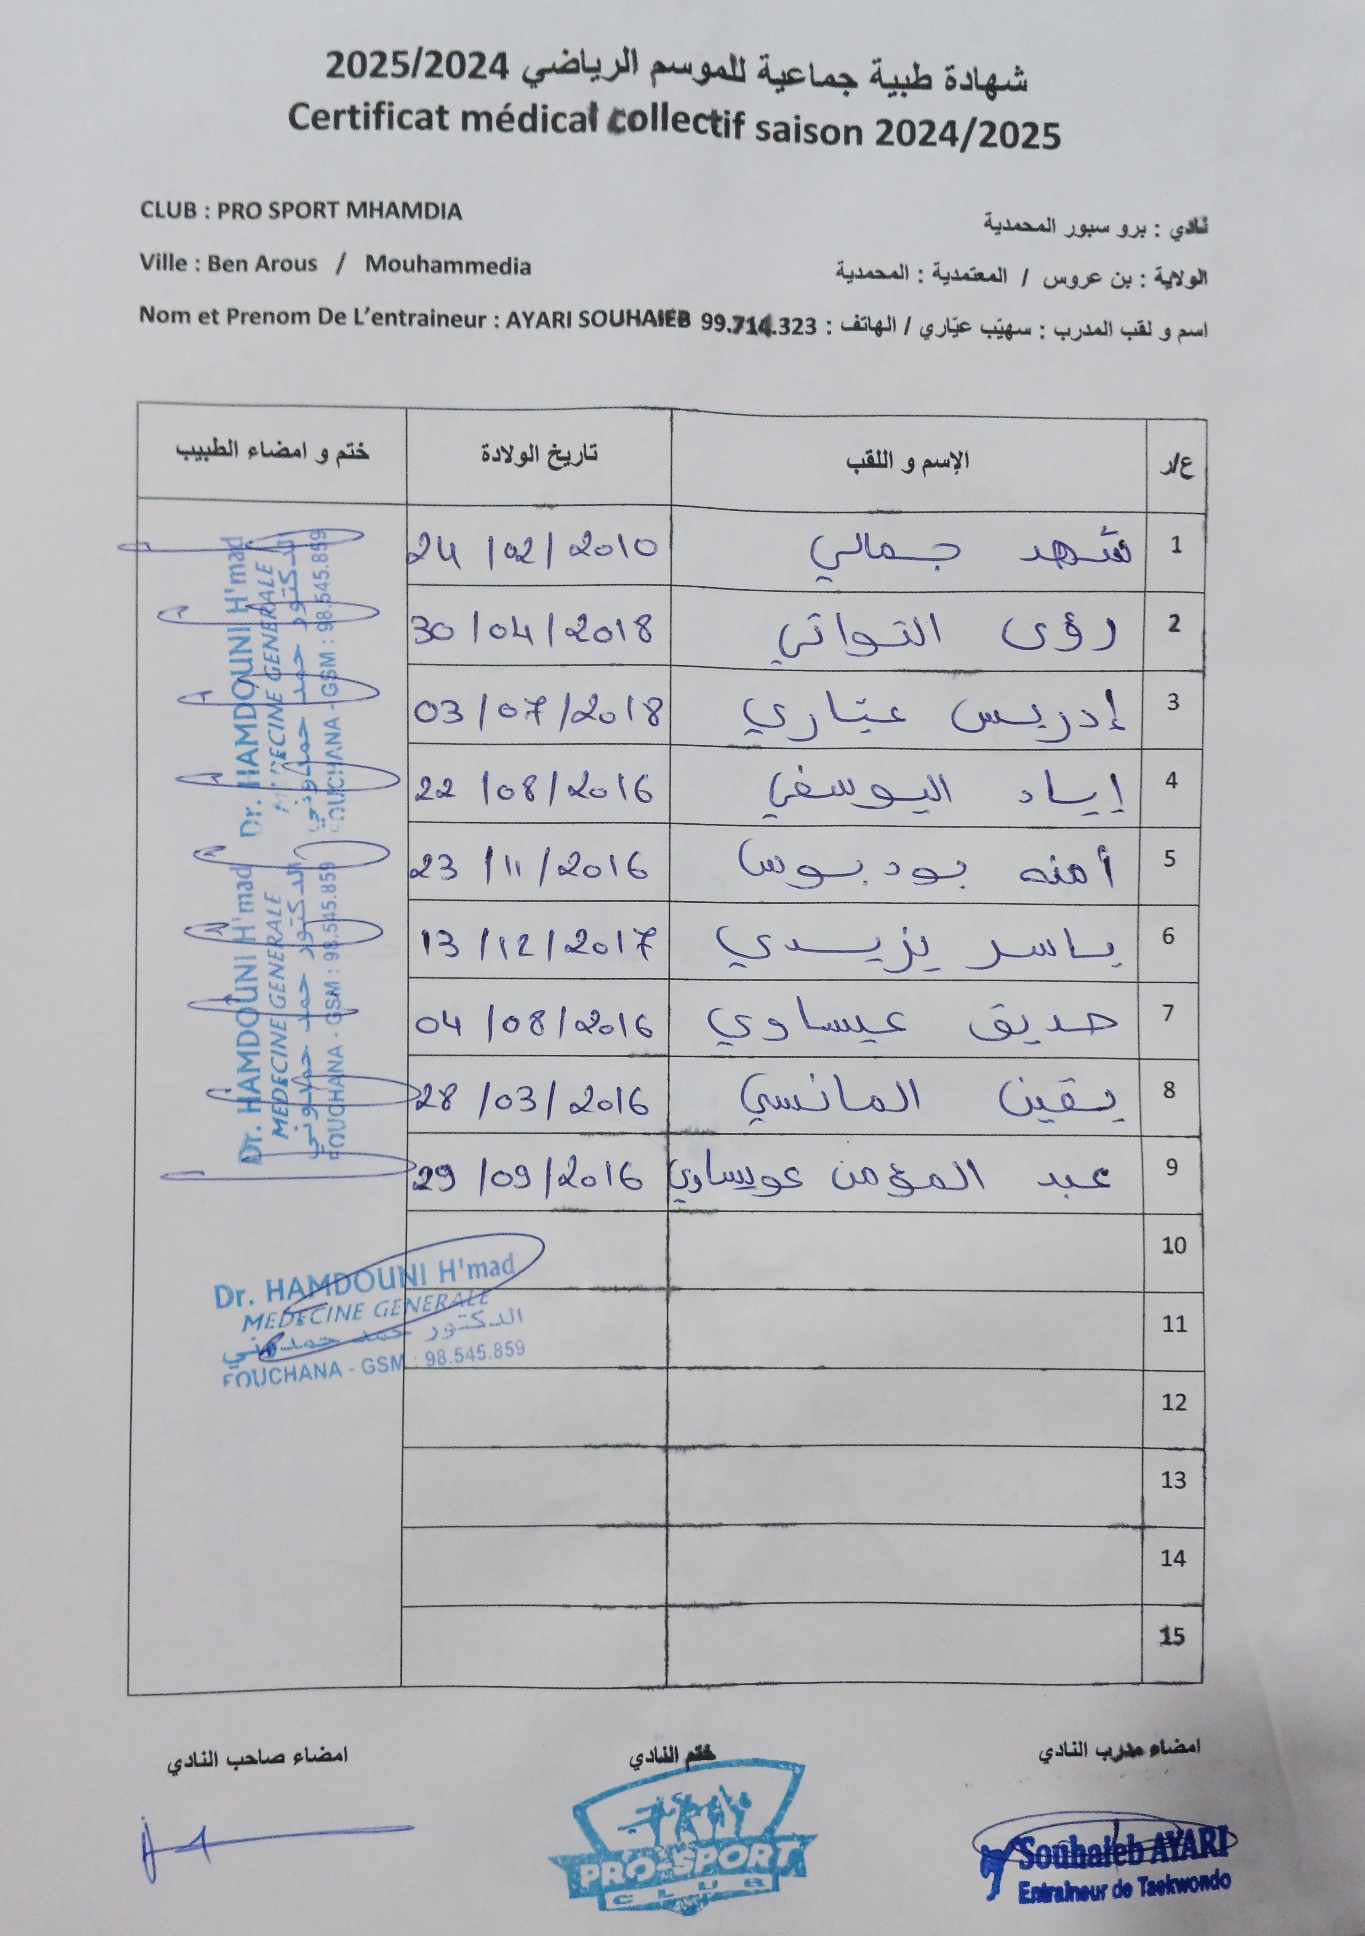 شهادة طبية جماعية للموسم الرياضي 2025/2024
Certificat médical collectif saison 2024/2025
CLUB : PRO SPORT MHAMDIA
نادي : برو سبور المحمدية
Ville : Ben Arous / Mouhammedia
الولاية : بن عروس / المعتمدية : المحمدية
Nom et Prenom De L'entraineur : AYARI SOUHAIEB
اسم و لقب المدرب : سهيّب عيّاري / الهاتف : 99.714.323
ع/ر الإسم و اللقب تاريخ الولادة ختم و امضاء الطبيب
1 شهد جمالي 24/02/2010
2 رؤى التواتي 30/04/2018
3 إدريس عيّاري 03/07/2018
4 إياد اليوسفي 22/08/2016
5 أمنه بودبوس 23/11/2016
6 ياسر يزيدي 13/12/2017
7 صديق عيساوي 04/08/2016
8 يقين المانسي 28/03/2016
9 عبد المؤمن عويساوي 29/09/2016
10
11
12
13
14
15
Dr. HAMDOUNI H'mad
MEDECINE GENERALE
الدكتور حمد حمدوني
FOUCHANA - GSM : 98.545.859
Dr. HAMDOUNI H'mad
MEDECINE GENERALE
الدكتور حمد حمدوني
FOUCHANA - GSM : 98.545.859
Dr. HAMDOUNI H'mad
MEDECINE GENERALE
الدكتور حمد حمدوني
FOUCHANA - GSM : 98.545.859
امضاء مدرب النادي
ختم النادي
امضاء صاحب النادي
Souhaieb AYARI
Entraîneur de Taekwondo
PRO-SPORT
CLUB